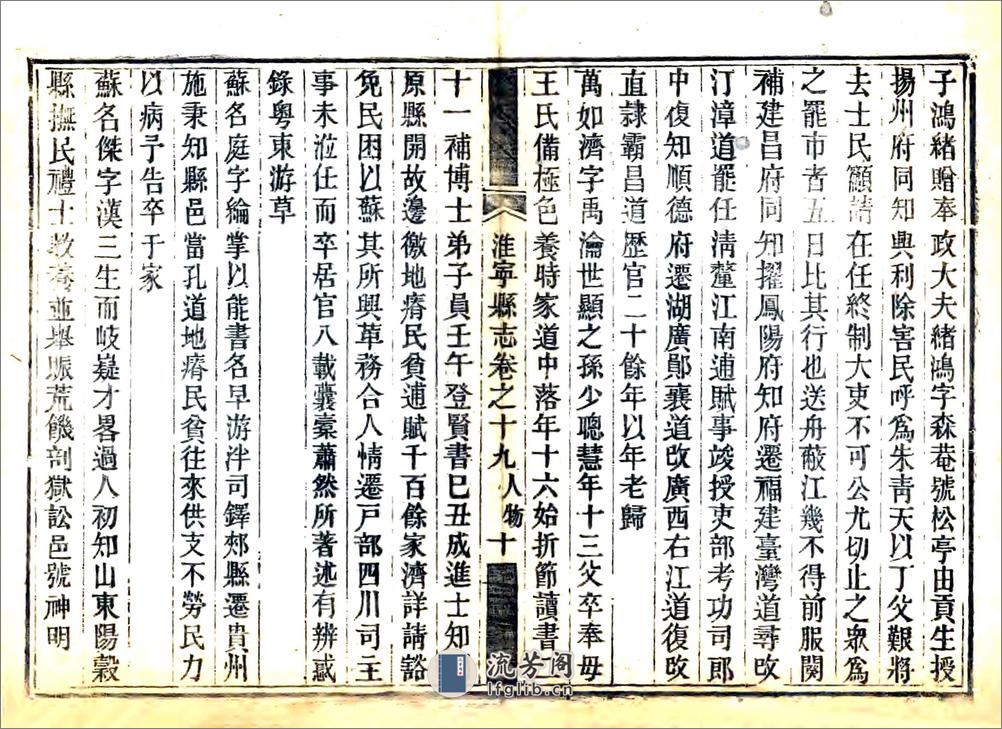 子鴻緒贈奉政大夫緒鴻字森菴號松亭由貢生授
揚州府同知興利除害民呼爲朱青天以丁父艱將
去士民籲請在任終制大吏不可公尤切止之衆爲
之罷市者五日比其行也送舟蔽江幾不得前服闋
補建昌府同知擢鳳陽府知府遷福建臺灣道尋改
汀漳道罷任淸釐江南逋賦事竣授吏部考功司郎
中復知順德府遷湖廣鄖襄道改廣西右江道復改
直隷霸昌道歷官二十餘年以年老歸
萬如濟字禹瀹世顯之孫少聰慧年十三父卒奉母
王氏備極色養時家道中落年十六始折節讀書二
淮寧縣志卷之十九 人物 十
十一補博士弟子員壬午登賢書巳丑成進士知
原縣開故邊徼地瘠民貧逋賦千百餘家濟詳請豁
免民困以蘇其所興革務合人情遷戸部四川司主
事未涖任而卒居官八載囊橐蕭然所著述有辨惑
錄粤東游草
蘇名庭字綸掌以能書名早游泮司鐸郟縣遷貴州
施秉知縣邑當孔道地瘠民貧往來供支不勞民力
以病予告卒于家
蘇名傑字漢三生而岐嶷才畧過人初知山東陽穀
縣撫民禮士教養並舉賑荒饑剖獄訟邑號神明
流芳閣
lfglib.cn